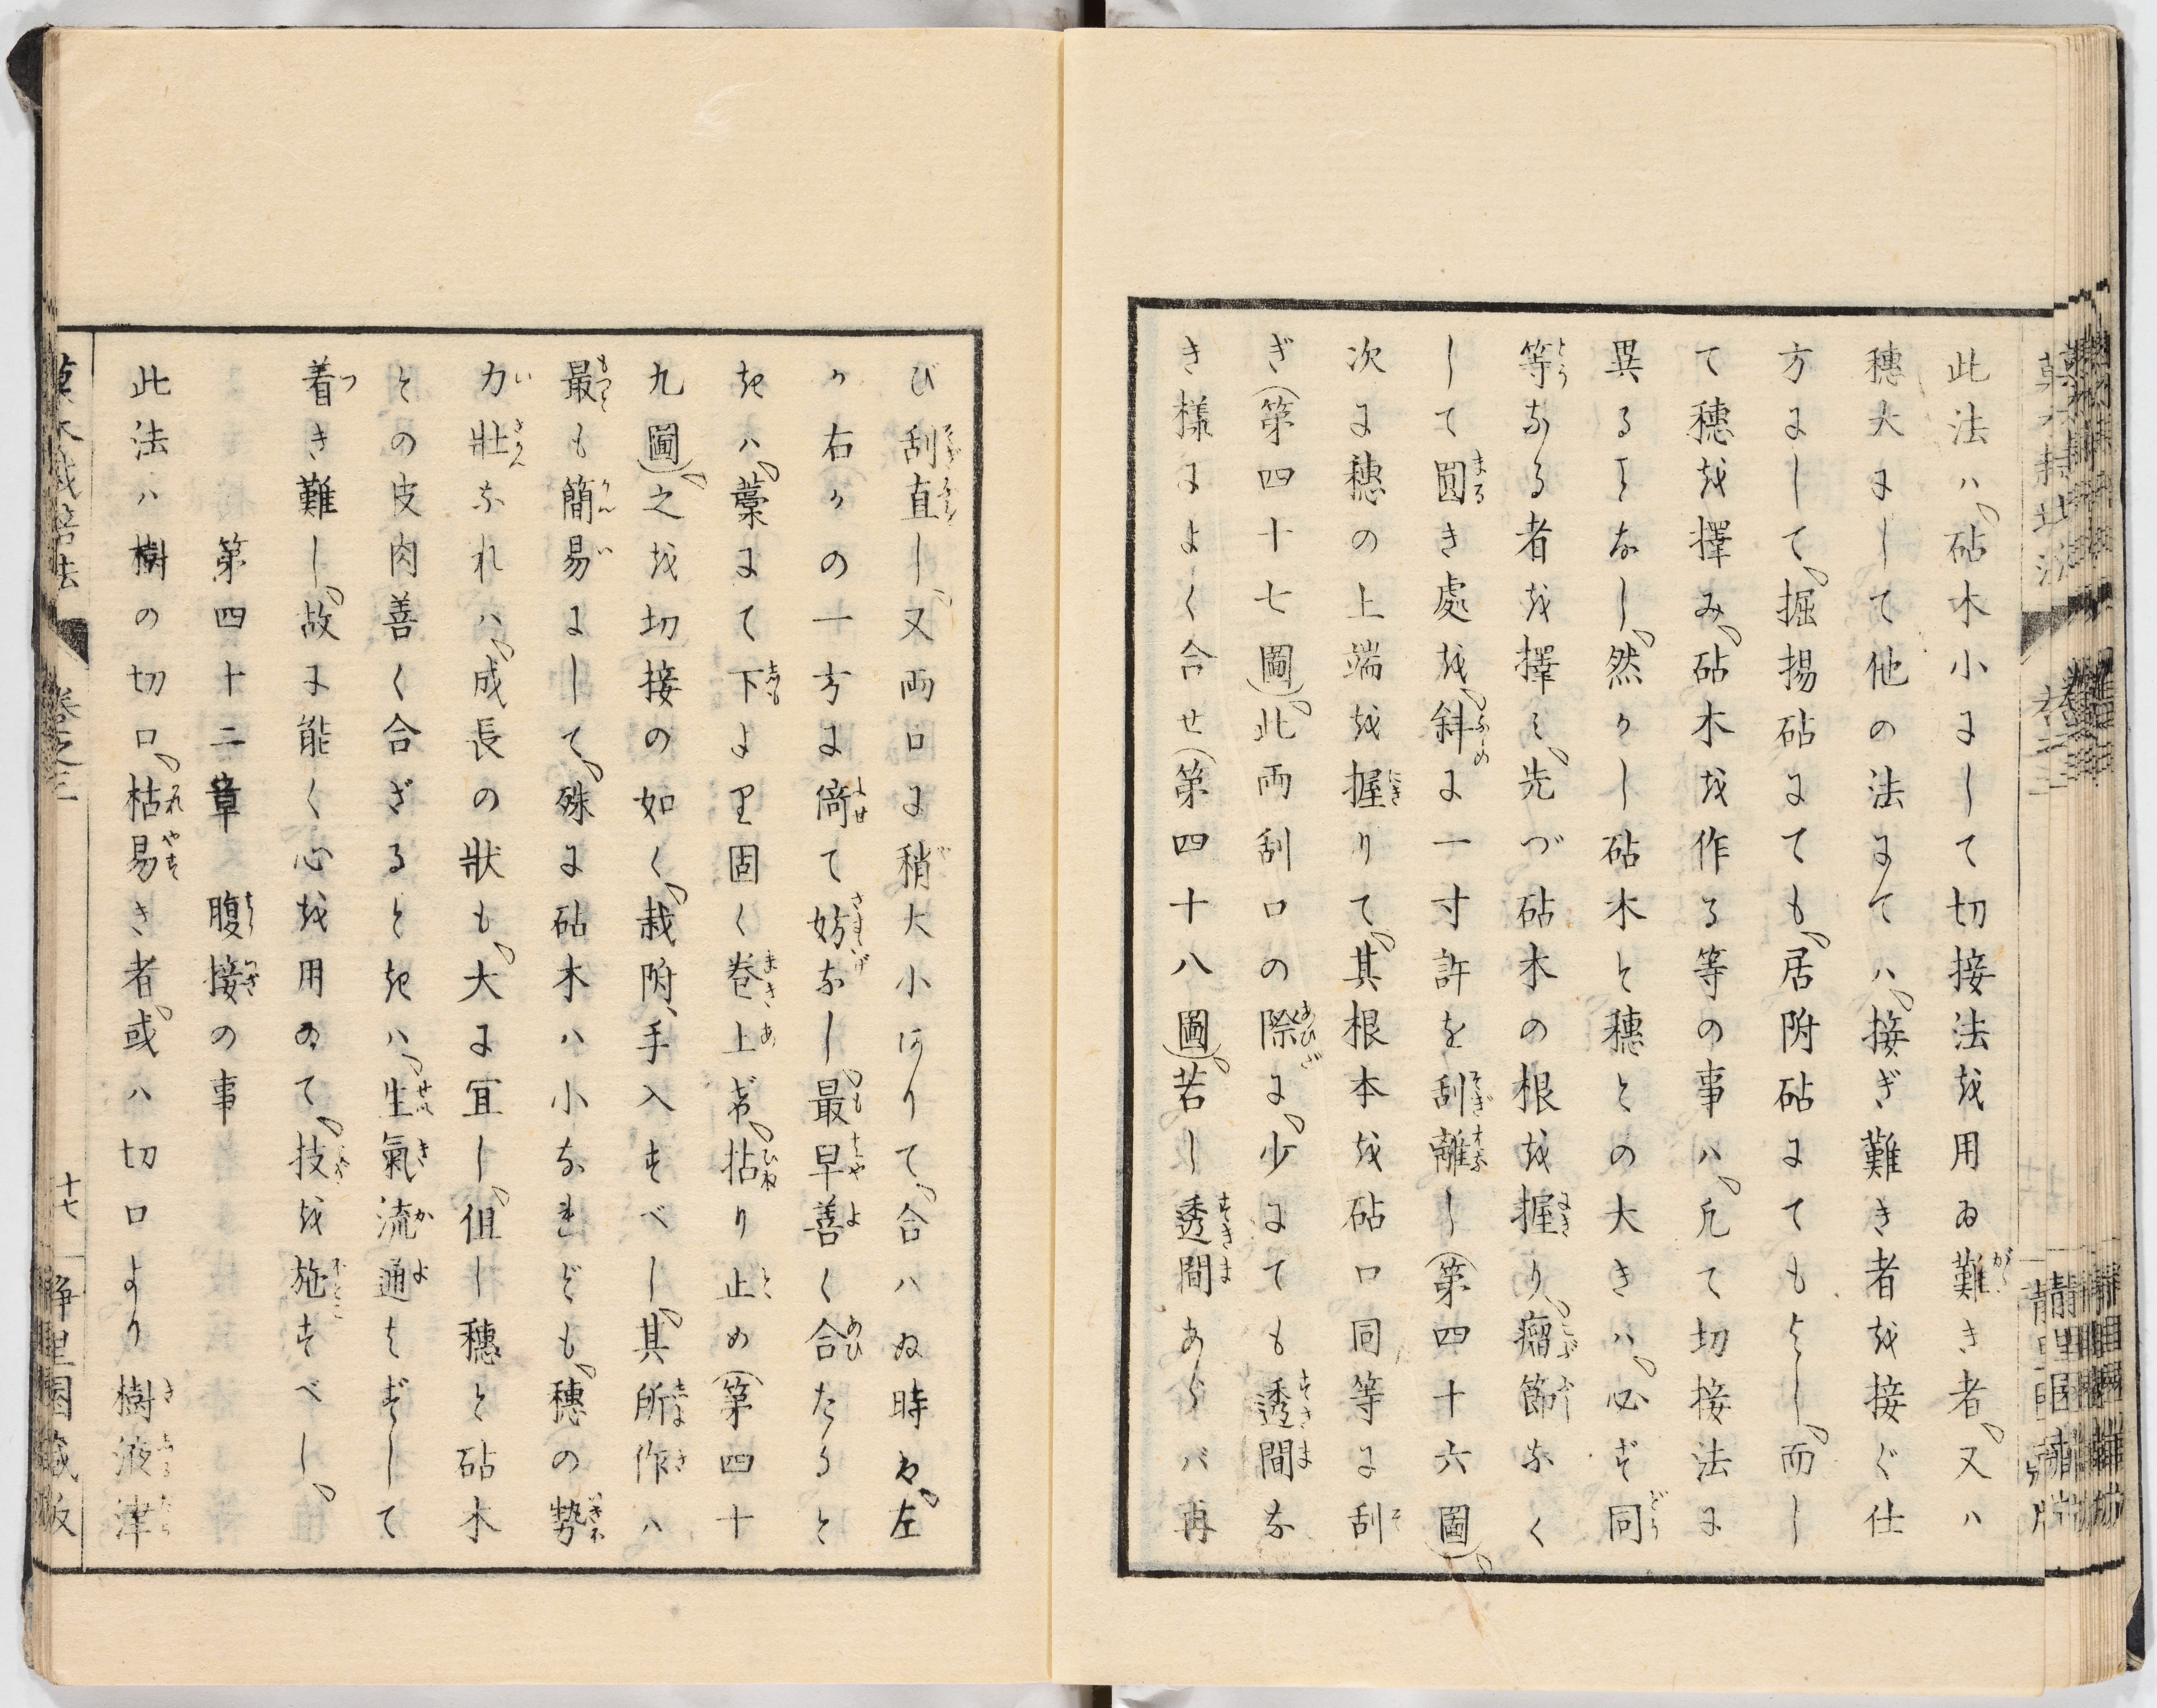 此法ハ、砧木小にして切接法を用ゐ難き者、又ハ
穗大にして他の法にてハ、接ぎ難き者を接ぐ仕
方にして、掘揚砧にても、居附砧にてもよし、而し
て穗を擇み、砧木を作る等の事ハ、凢て切接法に
異ることなし、然かし砧木と穗との大きハ、必ず同
等なる者を擇ミ、先づ砧木の根を握り、瘤節なく
して圓き處を、斜に一寸許を刮離し(第四十六圖)、
次に穗の上端を握りて、其根本を砧口同等に刮
ぎ(第四十七圖)、此両刮口の際に、少にても透間な
き様によく合せ(第四十八圖)、若し透間あらバ再
び刮直し、又両口に稍大小ありて、合ハぬ時ハ、左
か右かの一方に倚せて妨なし、最早善く合たると
きハ、藁にて下より固く巻上げ、拈り止め(第四十
九圖)、之を切接の如く、栽附、手入すべし、其所作ハ
最も簡易にして、殊に砧木ハ小なれども、穗の勢
力壯なれハ、成長の狀も、大に宜し、但し穗と砧木
との皮肉善く合ざるときハ、生氣流通せずして
着き難し、故に能く心を用ゐて、技を施すべし、
第四十二章　腹接の事
此法ハ樹の切口、枯易き者、或ハ切口より樹液津
菓木栽培法　卷之三　十七　静里園藏版